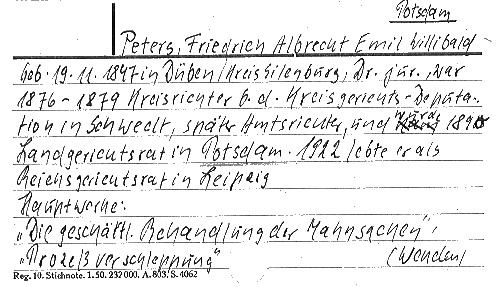 Potsdam
Peters, Friedrich Albrecht Emil Willibald
Geb. 19.11.1847 in Düben/Kreis Eilenburg, Dr. jur., war
1876-1879 Kreisrichter b. d. Kreisgerichts-Deputa-
tion in Schwedt, später Amtsrichter, und wurde 1890
Landgerichtsrat in Potsdam. 1922 lebte er als
Reichsgerichtsrat in Leipzig
Hauptwerke:
„Die geschäftl. Behandlung der Mahnsachen",
„Prozeßverschleppung" (Wenden)
Reg. 10. Stichnote. 1. 50. 232 000. A. 803/S. 4062